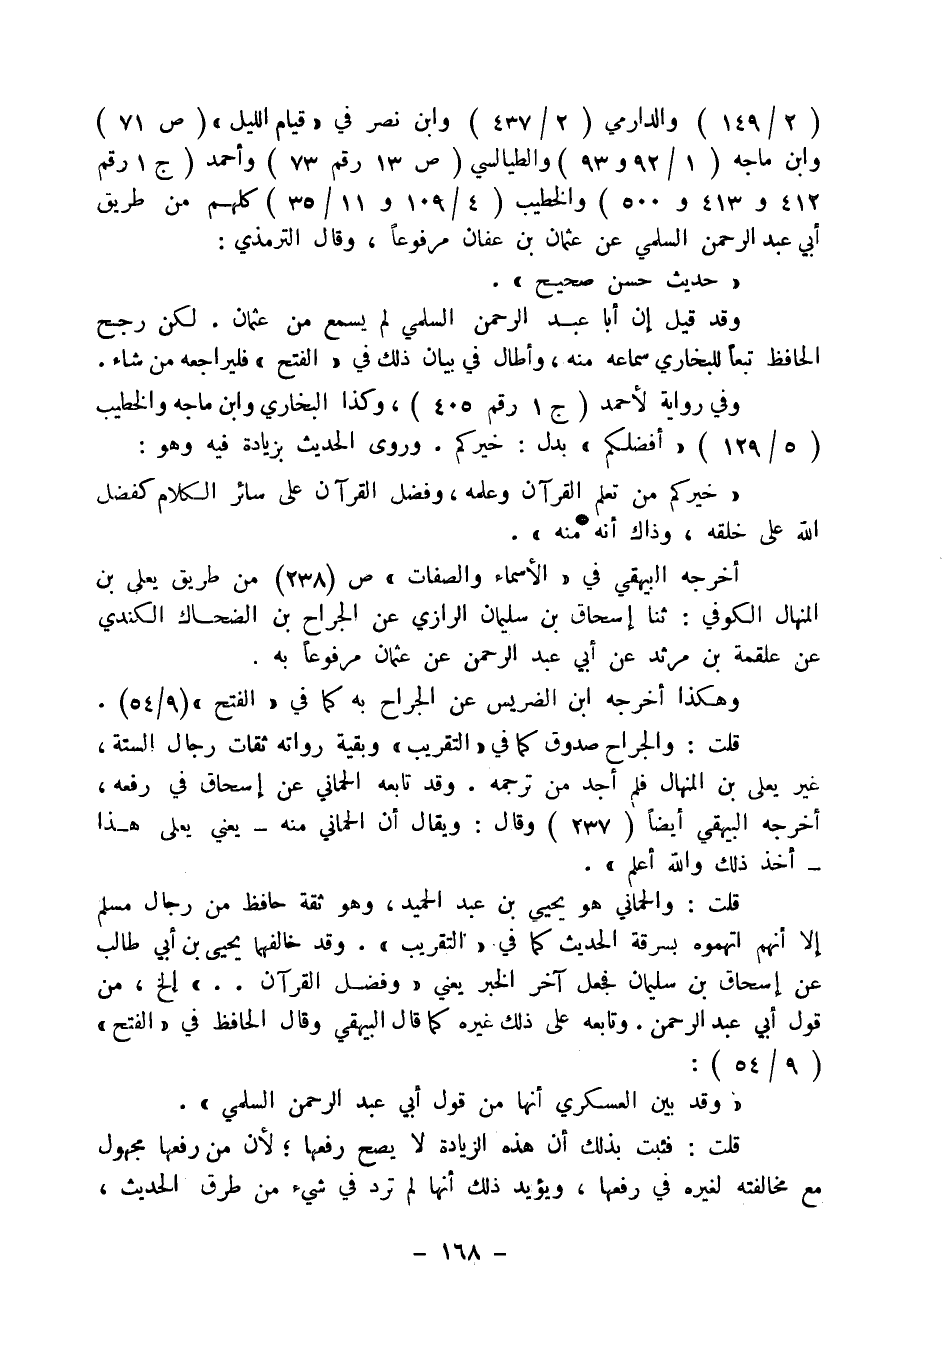 ( ٢ / ١٤٩ ) والدارمي ( ٢ / ٤٣٧ ) وابن نصر في « قيام الليل » ( ص ٧١ )
وابن ماجه ( ١ / ٩٢ و ٩٣ ) والطيالسي ( ص ١٣ رقم ٧٣ ) وأحمد ( ج ١ رقم
٤١٢ و ٤١٣ و ٥٠٠ ) والخطيب ( ٤ / ١٠٩ و ١١ / ٣٥ ) كلهم من طريق
أبي عبد الرحمن السلمي عن عثمان بن عفان مرفوعاً ، وقال الترمذي :
« حديث حسن صحيح » .
وقد قيل إن أبا عبد الرحمن السلمي لم يسمع من عثمان . لكن رجح
الحافظ تبعاً للبخاري سماعه منه ، وأطال في بيان ذلك في « الفتح » فليراجعه من شاء .
وفي رواية لأحمد ( ج ١ رقم ٤٠٥ ) ، وكذا البخاري وابن ماجه والخطيب
( ٥ / ١٢٩ ) « أفضلكم » بدل : خيركم . وروى الحديث بزيادة فيه وهو :
« خيركم من تعلم القرآن وعلمه ، وفضل القرآن على سائر الكلام كفضل
الله على خلقه ، وذاك أنه منه » .
أخرجه البيهقي في « الأسماء والصفات » ص (٢٣٨) من طريق يعلى بن
المنهال الكوفي : ثنا إسحاق بن سليمان الرازي عن الجراح بن الضحاك الكندي
عن علقمة بن مرثد عن أبي عبد الرحمن عن عثمان مرفوعاً به .
وهكذا أخرجه ابن الضريس عن الجراح به كما في « الفتح » (٩/٥٤) .
قلت : والجراح صدوق كما في « التقريب » وبقية رواته ثقات رجال الستة ،
غير يعلى بن المنهال فلم أجد من ترجمه . وقد تابعه الحماني عن إسحاق في رفعه ،
أخرجه البيهقي أيضاً ( ٢٣٧ ) وقال : ويقال أن الحماني منه – يعني يعلى هذا
– أخذ ذلك والله أعلم » .
قلت : والحماني هو يحيى بن عبد الحميد ، وهو ثقة حافظ من رجال مسلم
إلا أنهم اتهموه بسرقة الحديث كما في « التقريب » . وقد خالفها يحيى بن أبي طالب
عن إسحاق بن سليمان فجعل آخر الخبر يعني « وفضل القرآن . . » إلخ ، من
قول أبي عبد الرحمن . وتابعه على ذلك غيره كما قال البيهقي وقال الحافظ في « الفتح »
( ٩ / ٥٤ ) :
« وقد بين العسكري أنها من قول أبي عبد الرحمن السلمي » .
قلت : فثبت بذلك أن هذه الزيادة لا يصح رفعها ؛ لأن من رفعها مجهول
مع مخالفته لغيره في رفعها ، ويؤيد ذلك أنها لم ترد في شيء من طرق الحديث ،
– ١٦٨ –